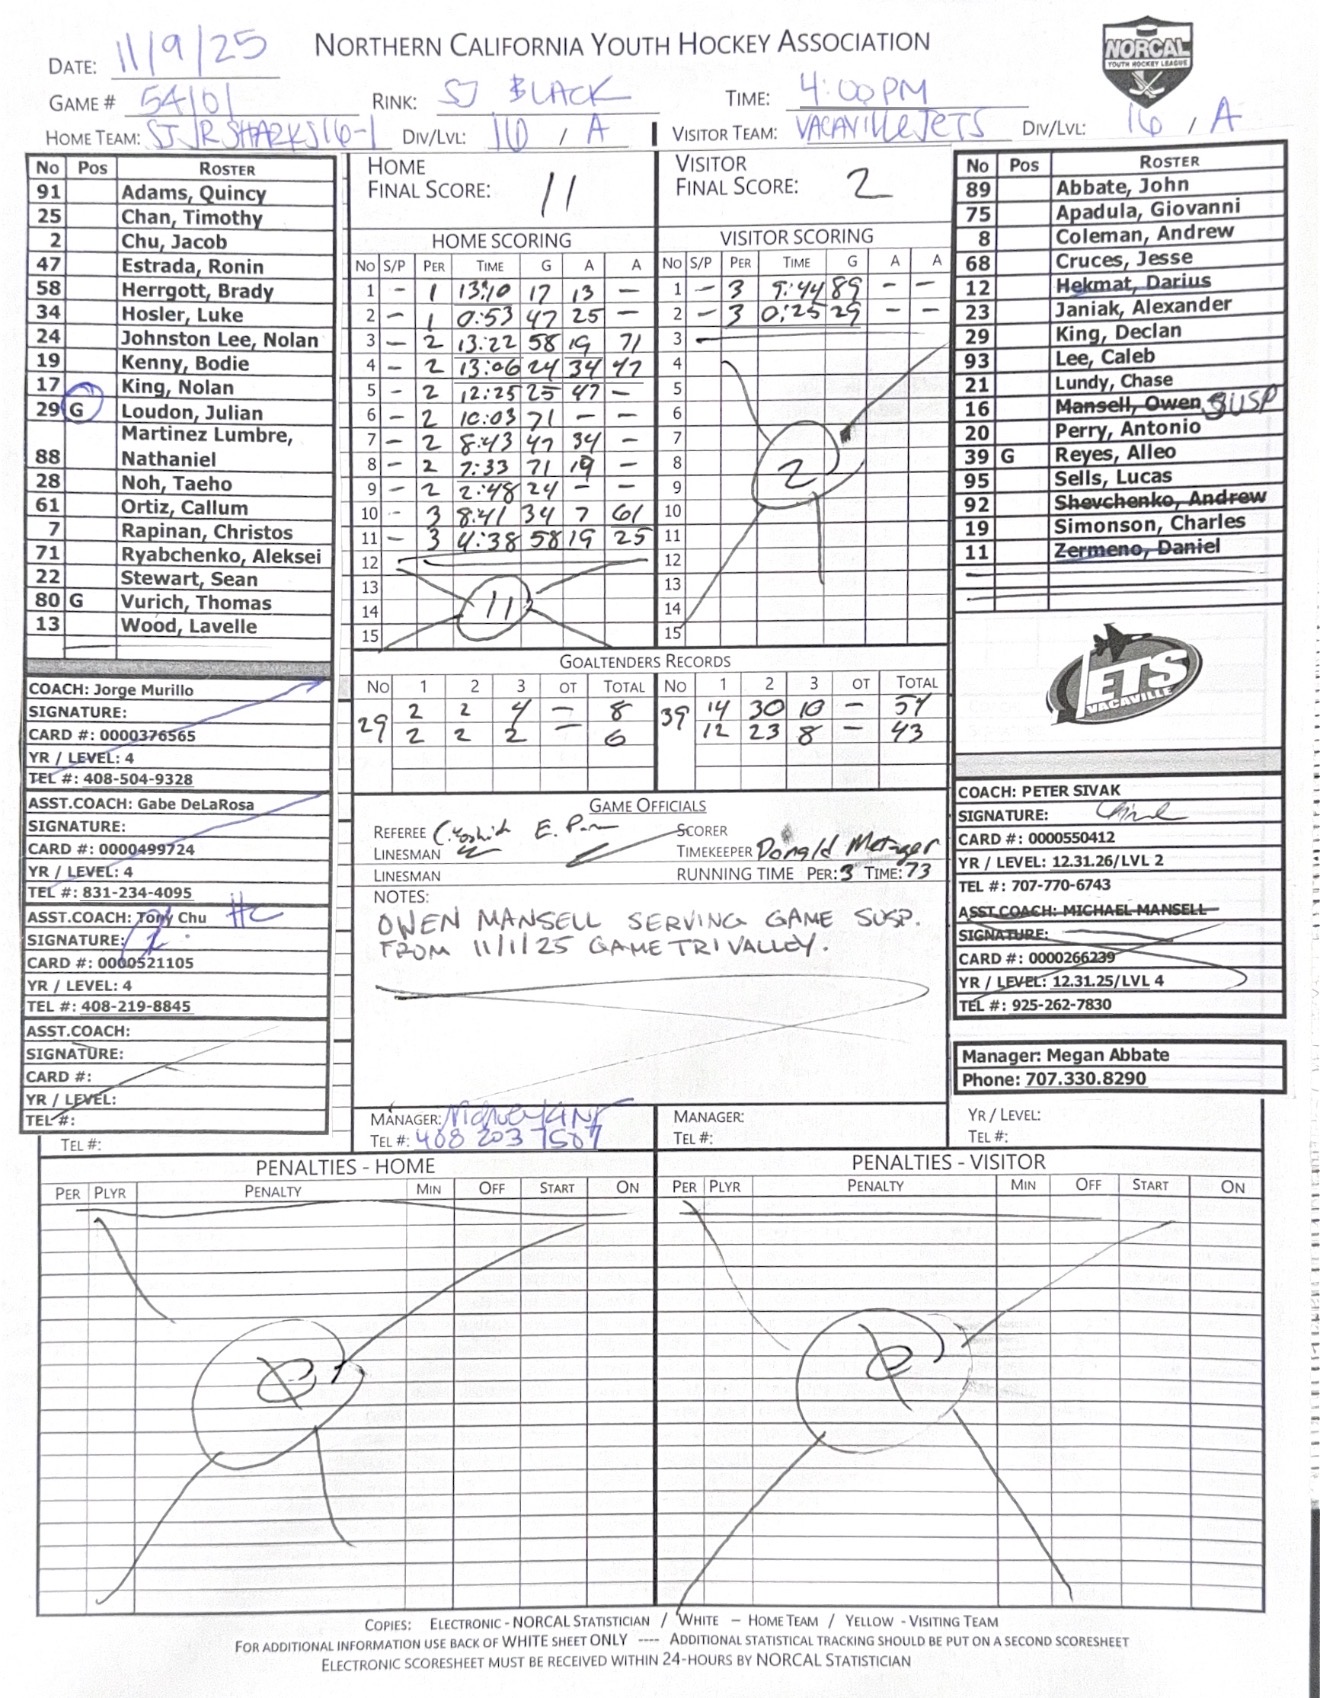 NORTHERN CALIFORNIA YOUTH HOCKEY ASSOCIATION
NORCAL
YOUTH HOCKEY LEAGUE
DATE: 11/9/25
GAME # 54101 RINK: SJ BLACK TIME: 4:00PM
HOME TEAM: SJ JR SHARKS 16-1 DIV/LVL: 16 / A VISITOR TEAM: VACAVILLE JETS DIV/LVL: 16 / A
No Pos ROSTER
91 Adams, Quincy
25 Chan, Timothy
2 Chu, Jacob
47 Estrada, Ronin
58 Herrgott, Brady
34 Hosler, Luke
24 Johnston Lee, Nolan
19 Kenny, Bodie
17 King, Nolan
29 G Loudon, Julian
Martinez Lumbre,
88 Nathaniel
28 Noh, Taeho
61 Ortiz, Callum
7 Rapinan, Christos
71 Ryabchenko, Aleksei
22 Stewart, Sean
80 G Vurich, Thomas
13 Wood, Lavelle
COACH: Jorge Murillo
SIGNATURE:
CARD #: 0000376565
YR / LEVEL: 4
TEL #: 408-504-9328
ASST.COACH: Gabe DeLaRosa
SIGNATURE:
CARD #: 0000499724
YR / LEVEL: 4
TEL #: 831-234-4095
ASST.COACH: Tony Chu HC
SIGNATURE:
CARD #: 0000521105
YR / LEVEL: 4
TEL #: 408-219-8845
ASST.COACH:
SIGNATURE:
CARD #:
YR / LEVEL:
TEL #:
TEL #:
HOME
FINAL SCORE: 11
HOME SCORING
No S/P PER TIME G A A
1 - 1 13:10 17 13 -
2 - 1 0:53 47 25 -
3 - 2 13:22 58 19 71
4 - 2 13:06 24 34 47
5 - 2 12:25 25 47 -
6 - 2 10:03 71 - -
7 - 2 8:43 47 34 -
8 - 2 7:33 71 19 -
9 - 2 2:48 24 - -
10 - 3 8:41 34 7 61
11 - 3 4:38 58 19 25
12
13
14 11
15
VISITOR
FINAL SCORE: 2
VISITOR SCORING
No S/P PER TIME G A A
1 - 3 9:44 89 - -
2 - 3 0:25 29 - -
3
4
5
6
7
8 2
9
10
11
12
13
14
15
GOALTENDERS RECORDS
No 1 2 3 OT TOTAL No 1 2 3 OT TOTAL
29 2 2 4 - 8 39 14 30 10 - 54
2 2 2 - 6 12 23 8 - 43
GAME OFFICIALS
REFEREE C. Yoshida E. SCORER
LINESMAN TIMEKEEPER Donald Metzger
LINESMAN RUNNING TIME PER: 3 TIME: 73
NOTES:
OWEN MANSELL SERVING GAME SUSP.
FROM 11/1/25 GAME TRI VALLEY.
MANAGER: MANAGER:
TEL #: 408 203 7507 TEL #:
No Pos ROSTER
89 Abbate, John
75 Apadula, Giovanni
8 Coleman, Andrew
68 Cruces, Jesse
12 Hekmat, Darius
23 Janiak, Alexander
29 King, Declan
93 Lee, Caleb
21 Lundy, Chase
16 Mansell, Owen SUSP
20 Perry, Antonio
39 G Reyes, Alleo
95 Sells, Lucas
92 Shevchenko, Andrew
19 Simonson, Charles
11 Zermeno, Daniel
JETS
VACAVILLE
COACH: PETER SIVAK
SIGNATURE:
CARD #: 0000550412
YR / LEVEL: 12.31.26/LVL 2
TEL #: 707-770-6743
ASST.COACH: MICHAEL MANSELL
SIGNATURE:
CARD #: 0000266239
YR / LEVEL: 12.31.25/LVL 4
TEL #: 925-262-7830
Manager: Megan Abbate
Phone: 707.330.8290
YR / LEVEL:
TEL #:
PENALTIES - HOME PENALTIES - VISITOR
PER PLYR PENALTY MIN OFF START ON PER PLYR PENALTY MIN OFF START ON
COPIES: ELECTRONIC - NORCAL STATISTICIAN / WHITE - HOME TEAM / YELLOW - VISITING TEAM
FOR ADDITIONAL INFORMATION USE BACK OF WHITE SHEET ONLY ---- ADDITIONAL STATISTICAL TRACKING SHOULD BE PUT ON A SECOND SCORESHEET
ELECTRONIC SCORESHEET MUST BE RECEIVED WITHIN 24-HOURS BY NORCAL STATISTICIAN